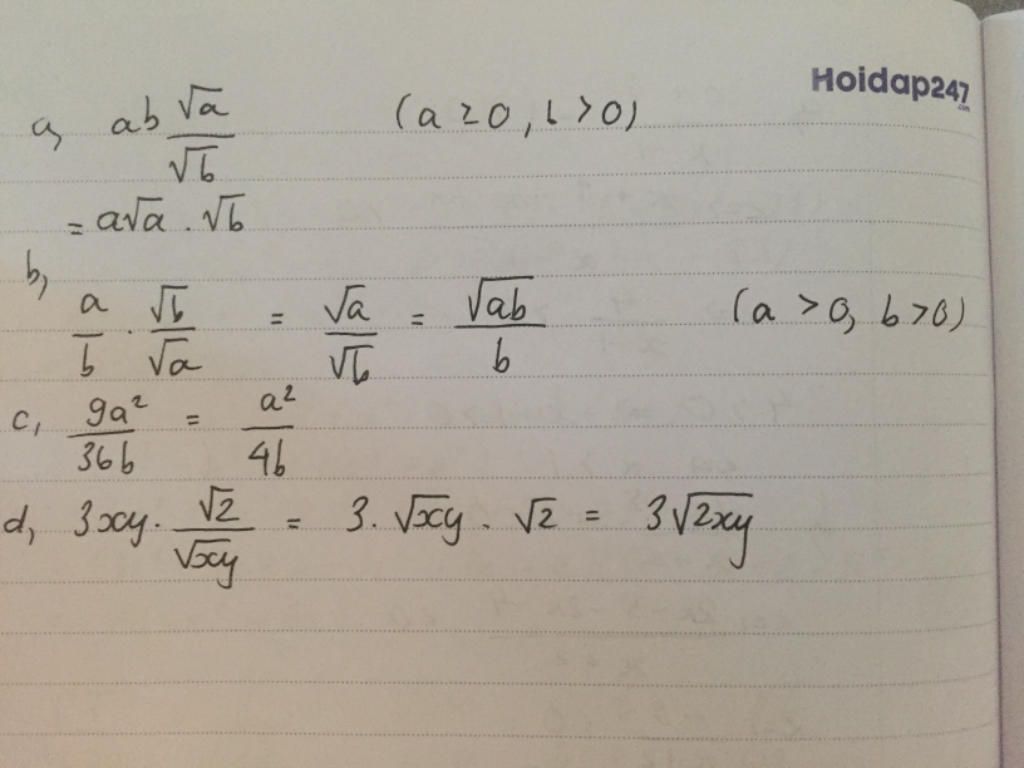 Hoidap247
.com
a, ab √a/√b (a ≥ 0, b > 0)
= a√a . √b
b,
a/b . √b/√a = √a/√b = √ab/b (a > 0, b > 0)
c, 9a²/36b = a²/4b
d, 3xy . √2/√xy = 3 . √xy . √2 = 3√2xy